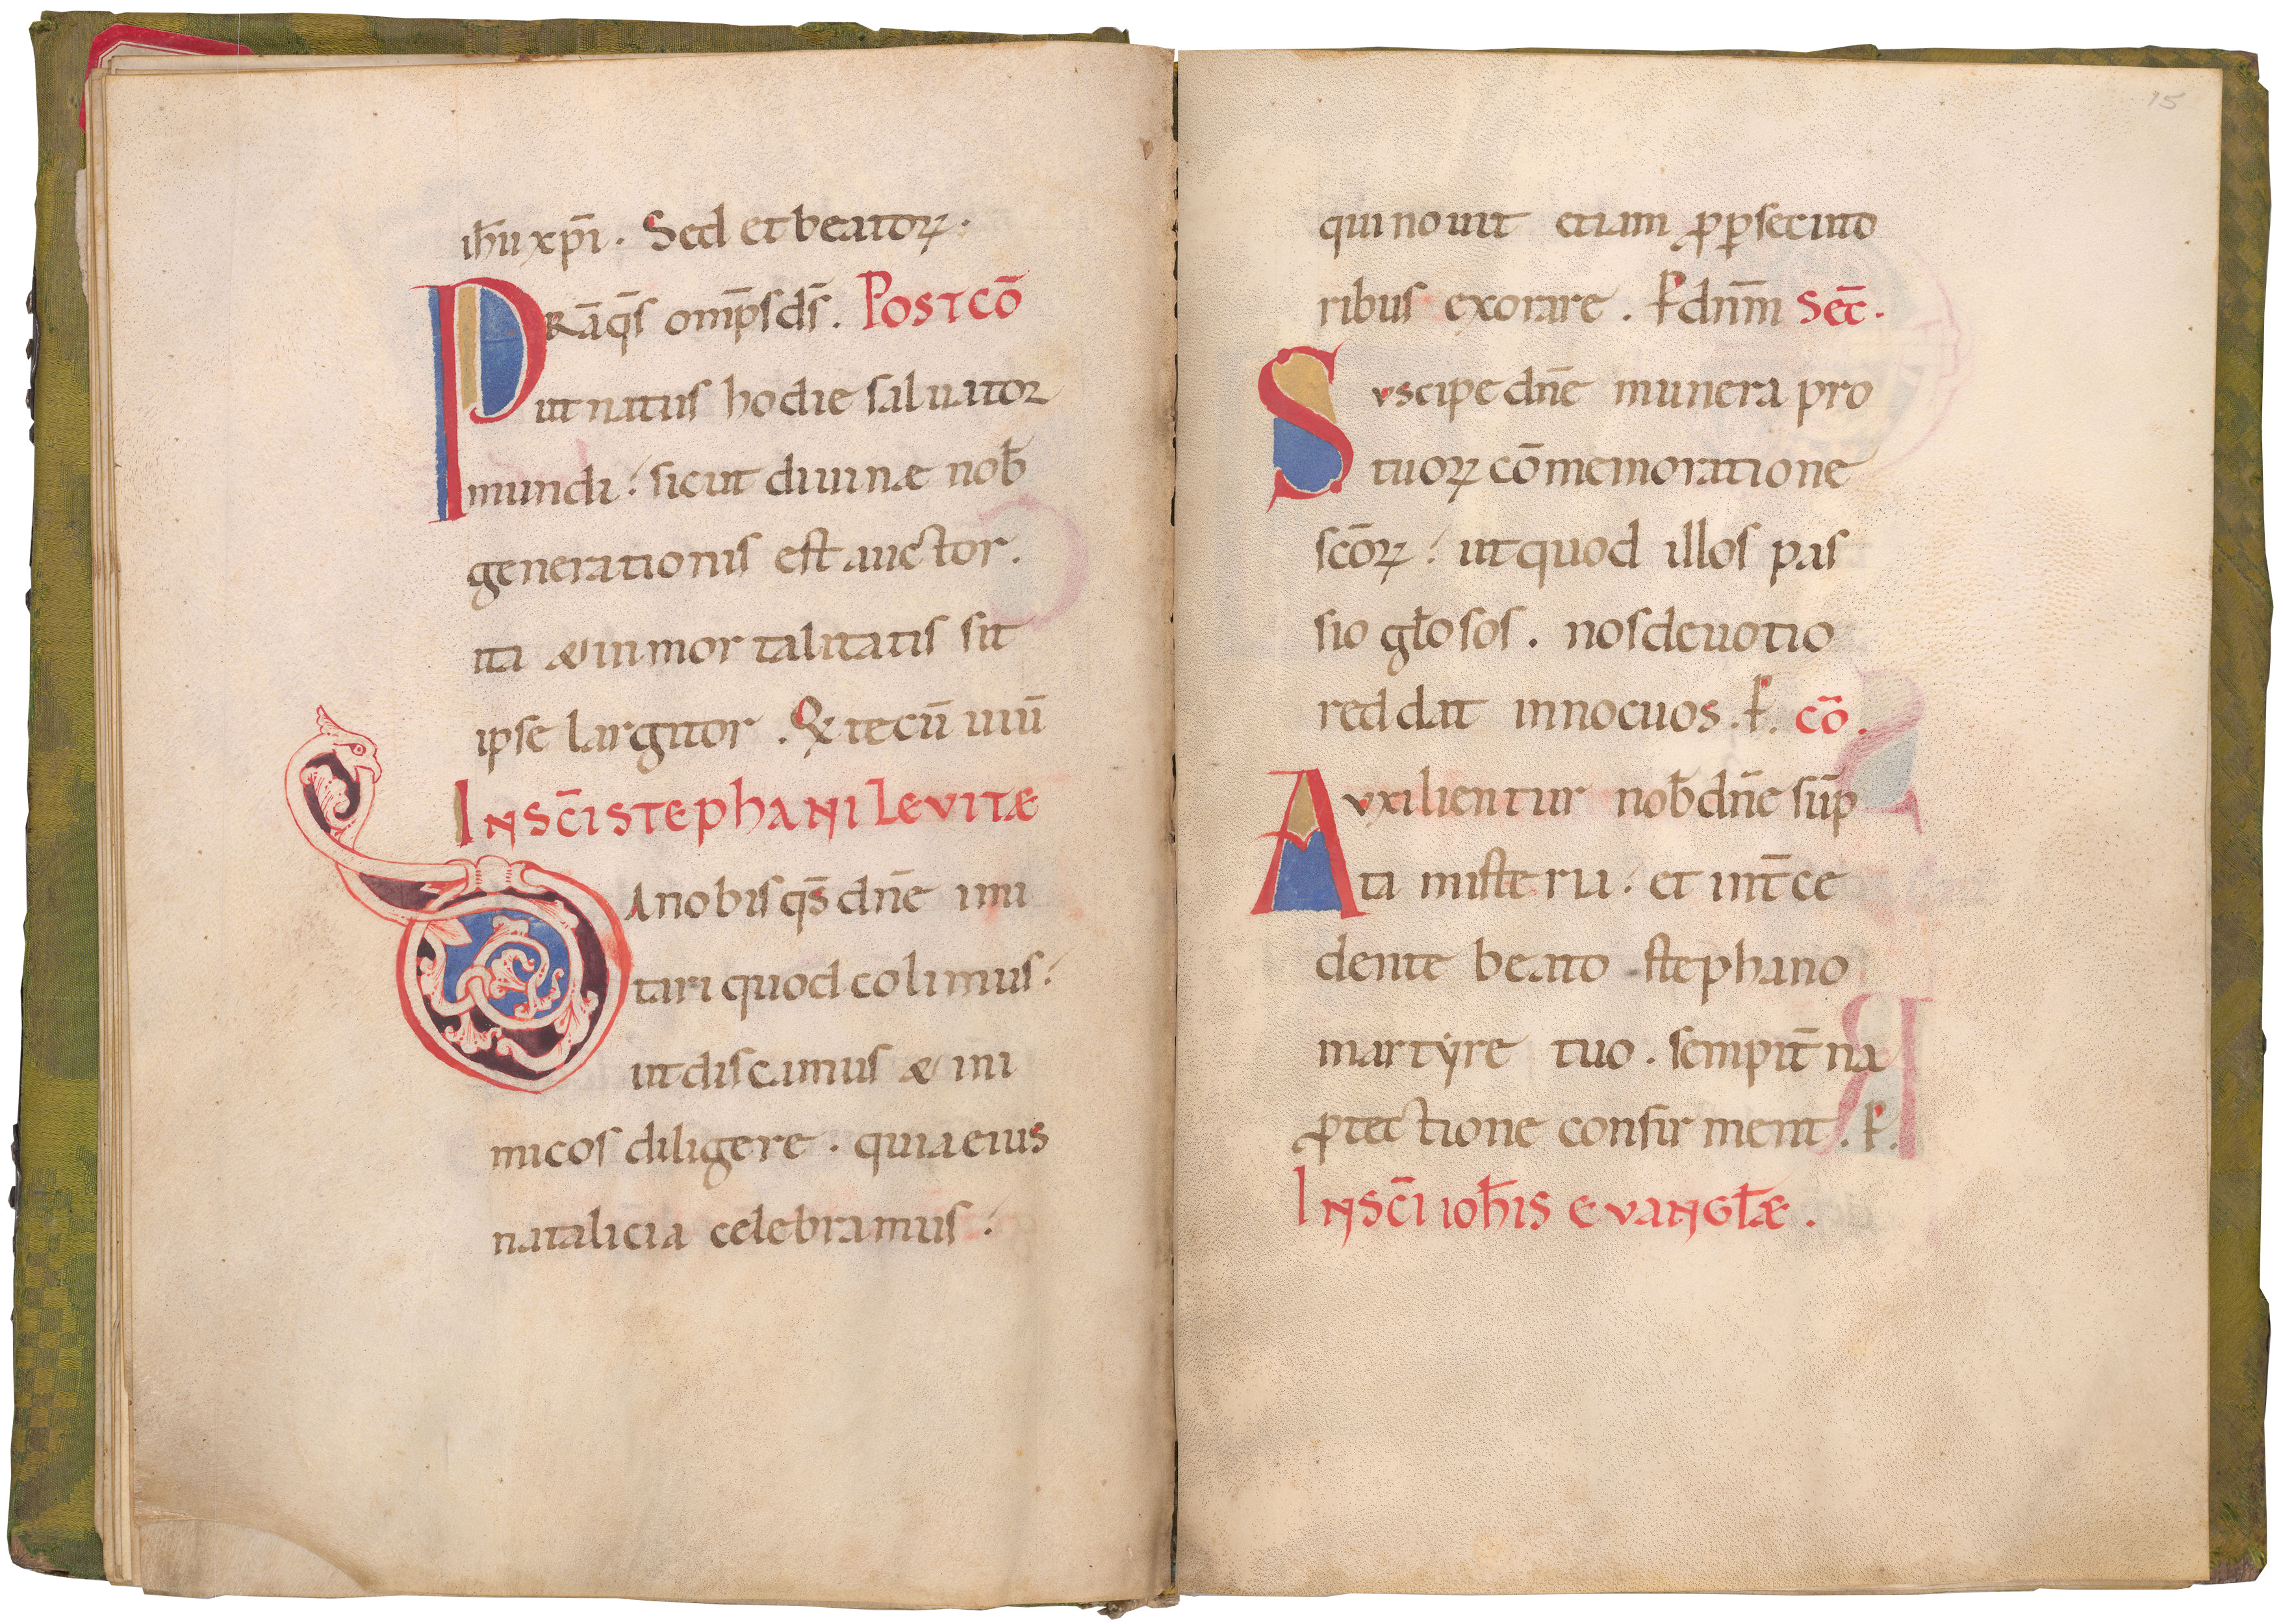 ih̅u xp̅i. Sed et beatoꝝ.
PRA̅ q̅s om̅ps d̅s. POSTCO̅
ut natus hodie saluator
mundi; sicut diuinæ nob̅
generationis est auctor.
ita & inmortalitatis sit
ipse largitor. Q̶ tecu̅ uiu̅
IN SC̅I STEPHANI LEVITÆ
DA nobis q̅s dn̅e imi
tari quod colimus;
ut discamus & ini
micos diligere. quia eius
natalicia celebramus;
15
qui nouit etiam ꝓ ꝑsecuto
ribus exorare. ꝑ dn̅m SEC̅.
SVscipe dn̅e munera pro
tuoꝝ co̅memoratione
sc̅oꝝ; ut quod illos pas
sio gl̅osos. nos deuotio
reddat innocuos. ꝑ. CO̅.
AVxilientur nob̅ dn̅e su̅p
ta misteria; et int̅ce
dente beato stephano
martẏre tuo. sempit̅na
ꝓtectione confirment. ꝑ.
IN SC̅I IOH̅IS EVANGL̅Æ.